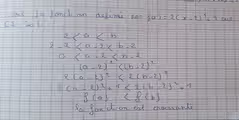 la fonction définie par f(x) = 2(x-2)²+1 sur
2 < a < b
2-2 < a-2 < b-2
0 < a-2 < b-2
(a-2)² < (b-2)²
2(a-2)² < 2(b-2)²
2(a-2)²+1 < 2(b-2)²+1
f(a) < f(b)
la fonction est croissante